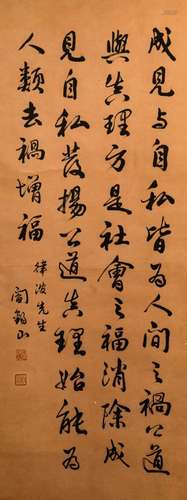 成見与自私皆为人间之禍公道
與真理方是社會之福消除成
見自私发揚公道真理始能为
人類去禍增福
律波先生
閻錫山